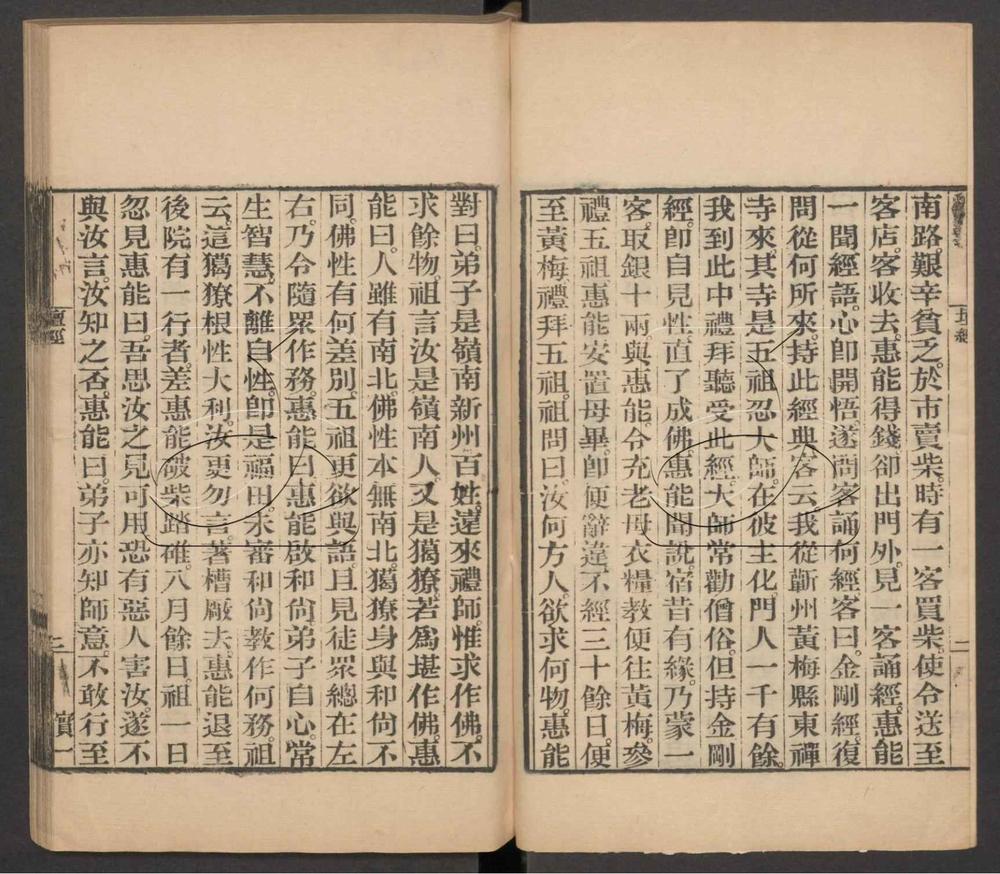 南路。艱辛貧乏。於市賣柴。時有一客買柴。使令送至
客店。客收去。惠能得錢。卻出門外。見一客誦經。惠能
一聞經語。心卽開悟。遂問客誦何經。客曰。金剛經。復
問從何所來。持此經典。客云。我從蘄州黃梅縣東禪
寺來。其寺是五祖忍大師。在彼主化。門人一千有餘。
我到此中禮拜聽受此經。大師常勸僧俗。但持金剛
經。卽自見性。直了成佛。惠能聞說。宿昔有緣。乃蒙一
客。取銀十兩。與惠能。令充老母衣糧。教便往黃梅。參
禮五祖。惠能安置母畢。卽便辭違。不經三十餘日。便
至黃梅。禮拜五祖。祖問曰。汝何方人。欲求何物。惠能
對曰。弟子是嶺南新州百姓。遠來禮師。惟求作佛。不
求餘物。祖言汝是嶺南人。又是獦獠。若爲堪作佛。惠
能曰。人雖有南北。佛性本無南北。獦獠身與和尙不
同。佛性有何差別。五祖更欲與語。且見徒眾總在左
右。乃令隨眾作務。惠能曰。惠能啟和尙。弟子自心。常
生智慧。不離自性。卽是福田。未審和尙教作何務。祖
云。這獦獠根性大利。汝更勿言。著槽廠去。惠能退至
後院。有一行者。差惠能破柴踏碓。八月餘日。祖一日
忽見惠能曰。吾思汝之見可用。恐有惡人害汝。遂不
與汝言。汝知之否。惠能曰。弟子亦知師意。不敢行至
壇經
二
寶一